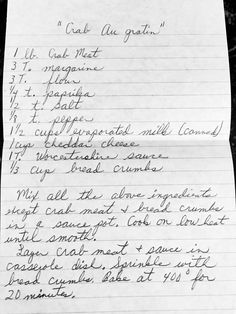 "Crab Au gratin"
1 lb. Crab Meat
3 T. margarine
3 T. flour
1/4 t. paprika
1/2 t. salt
1/8 t. pepper
1 1/2 cups evaporated milk (canned)
1 cup cheddar cheese
1 T. Worcestershire sauce
1/3 cup bread crumbs
Mix all the above ingredients
except crab meat & bread crumbs
in a sauce pot. Cook on low heat
until smooth.
Layer crab meat & sauce in
casserole dish. Sprinkle with
bread crumbs. Bake at 400° for
20 minutes.